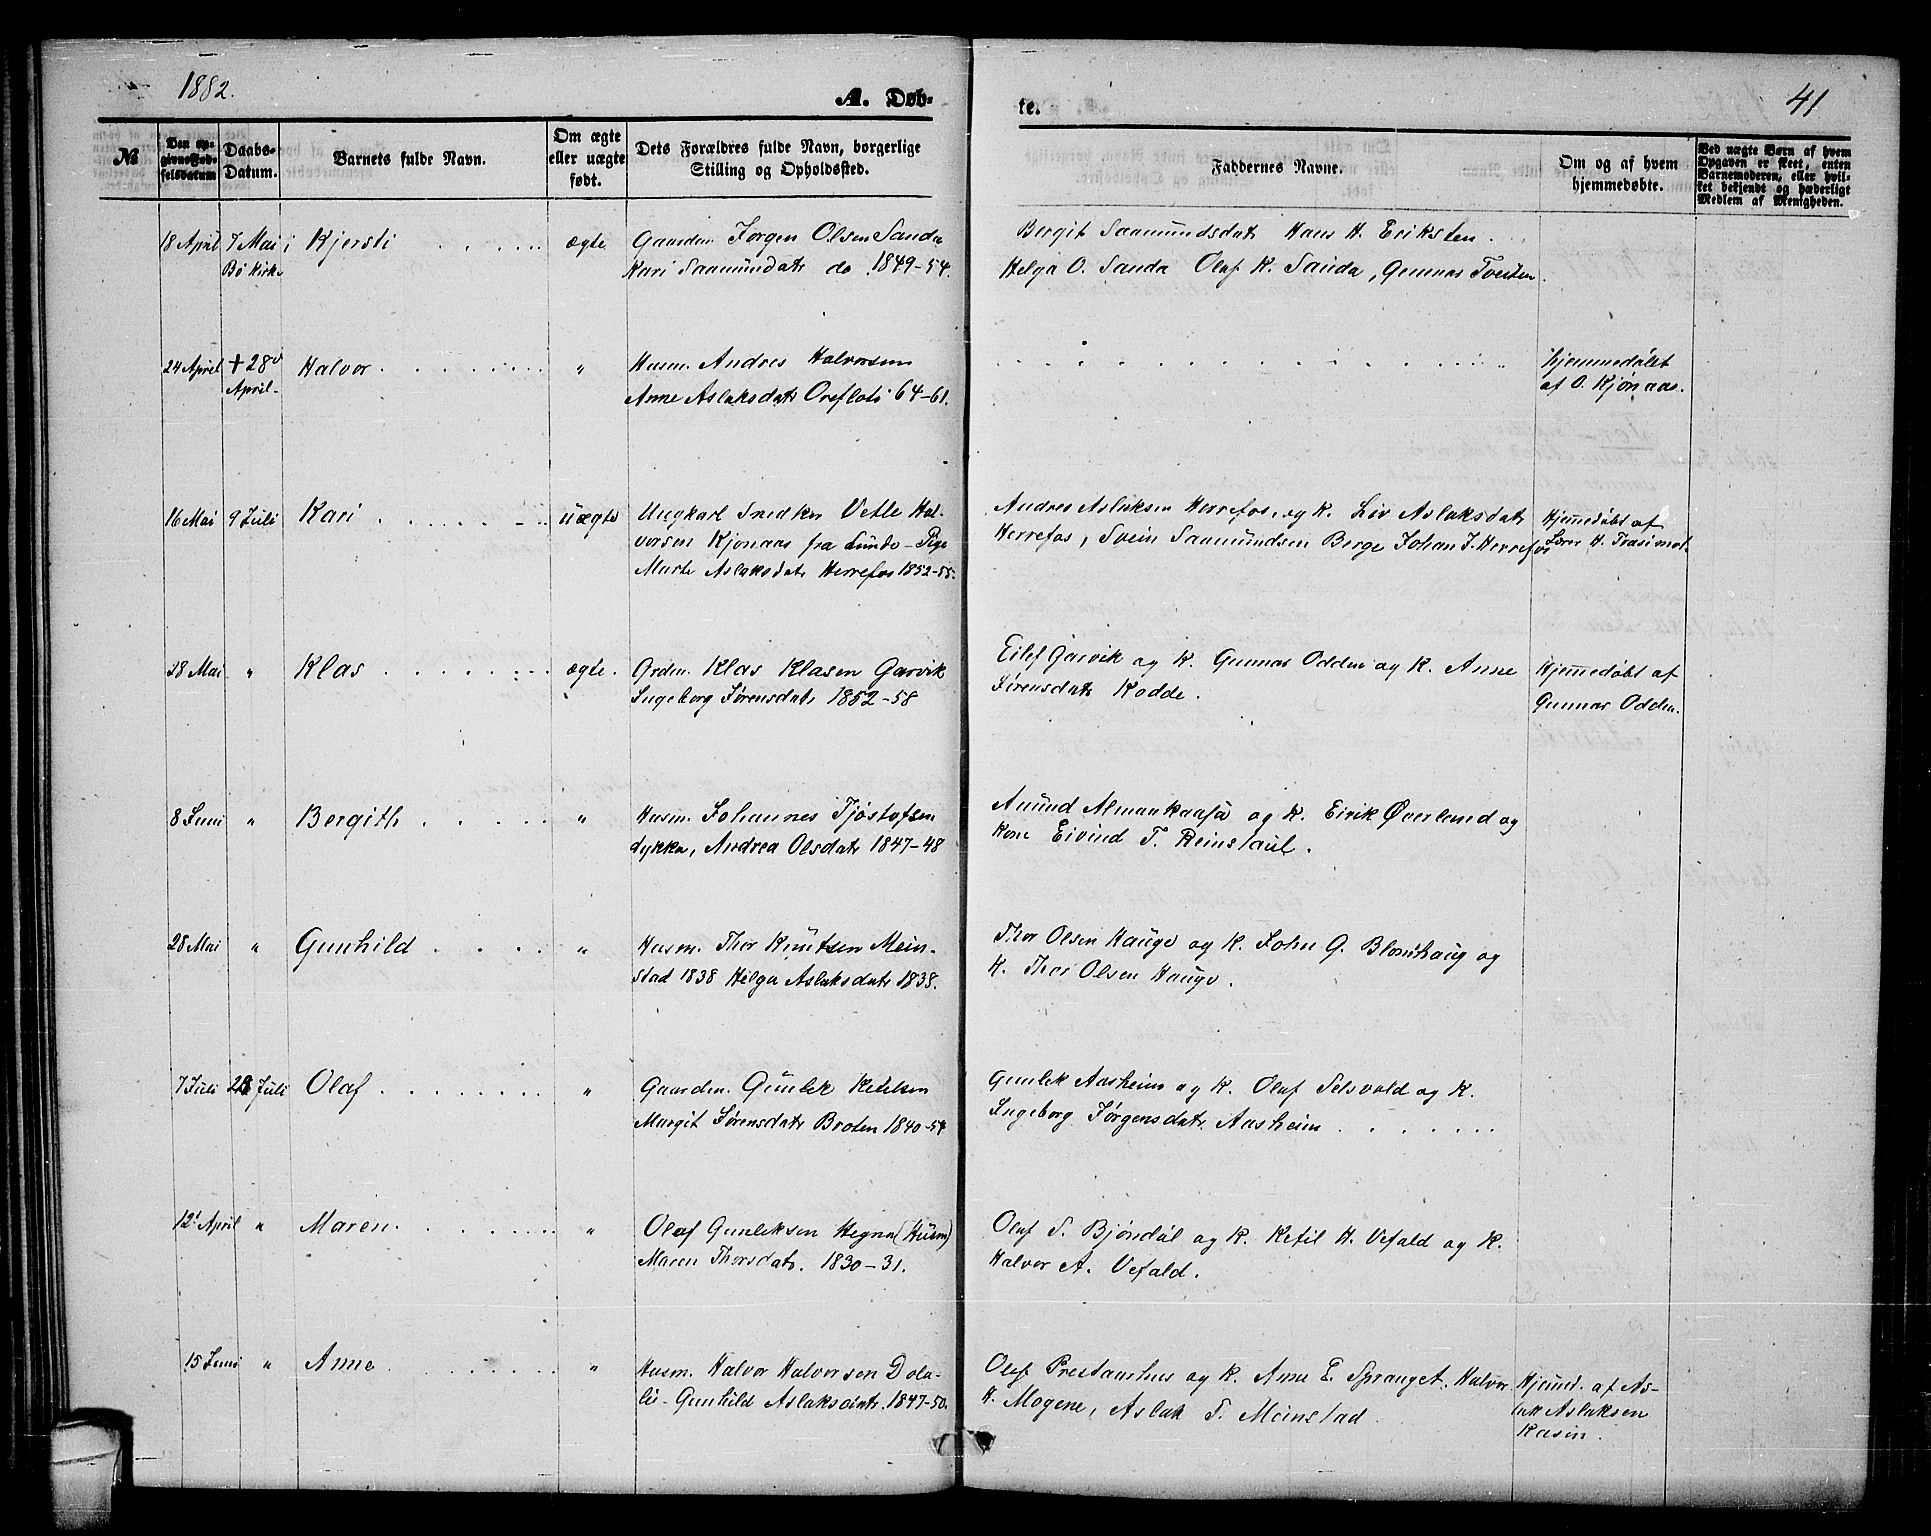 1882.
A. Døb-
te.
41
№
Den op-
givne Fød-
selsdatum
Daabs-
Datum.
Barnets fulde Navn.
Om ægte
eller uægte
født.
Dets Forældres fulde Navn, borgerlige
Stilling og Opholdssted.
Faddernes Navne.
Om og af hvem
hjemmedøbte.
Ved uægte Børn af hvem
Opgaven er skeet, enten
Barnemoderen, eller hvil-
ket bekjendt og hæderligt
Medlem af Menigheden.
18 April 7 Mai i Kjersti ægte Gaardm. Jørgen Olsen Sanda
Bø Kirke Kari Saamundsdatr do 1849-54.
Bergit Saamundsdatr Hans H. Eriksten.
Helga O. Sanda Olaf K. Sanda, Gunnar Tveiten.
24 April + 28 Halvor " Husm. Andres Halvorsen
April. Anne Aslaksdatr Oreflot 64-61.
Hjemmedøbt
af O. Kjønaas.
16 Mai 9 Juli Kari uægte Ungkarl Snedker Vetle Hal-
vorsen Kjønaas fra Lunde - Pige
Marte Aslaksdatr Herrefos 1852-55.
Andres Aslaksen Herrefos og K. Liv Aslaksdatr Hjemedøbt af
Herrefos, Svein Saamundsen Berge Johan J. Herrefos H.
28 Mai " Klas ægte. Ordm. Klas Klasen Garvik
Ingeborg Sørensdatr 1852-58
Eilef Garvik og K. Gunnar Odden og K. Anne
Sørensdatr Kodde.
Hjemedøbt af
Gunnar Odden.
8 Juni " Bergith " Husm. Johannes Tjøstofsen
dykka, Andrea Olsdatr 1847-48
Amund Almankaasa og K. Eirik Øverland og
Kone Eivind T. Reinstaul.
28 Mai " Gunhild " Husm. Thor Knutsen Mein-
stad 1838 Helga Aslaksdatr 1838.
Thor Olsen Hauge og K. John G. Blomhaug og
K. Thor Olsen Hauge.
7 Juli 23 Juli Olaf " Gaardm. Gunlek Ketilsen
Margit Sørensdatr Broten 1840-54
Gunlek Aasheim og K. Olaf Selsvold og K.
Ingeborg Jørgensdatr Aasheim
12 April " Maren " Olaf Gunleksen Hegna (Husm)
Maren Thorsdatr. 1830-31.
Olaf S. Bjøndal og K. Ketil H. Vefald og K.
Halvor A. Vefald.
15 Juni " Anne " Husm. Halvor Halvorsen Dola-
lie - Gunhild Aslaksdatr. 1847-50.
Olaf Prestamhus og K. Anne E. Spranget. Halvor
H. Mogene, Aslak T. Meinstad.
Hjemd. af As-
lak Aslaksen
Kasin.